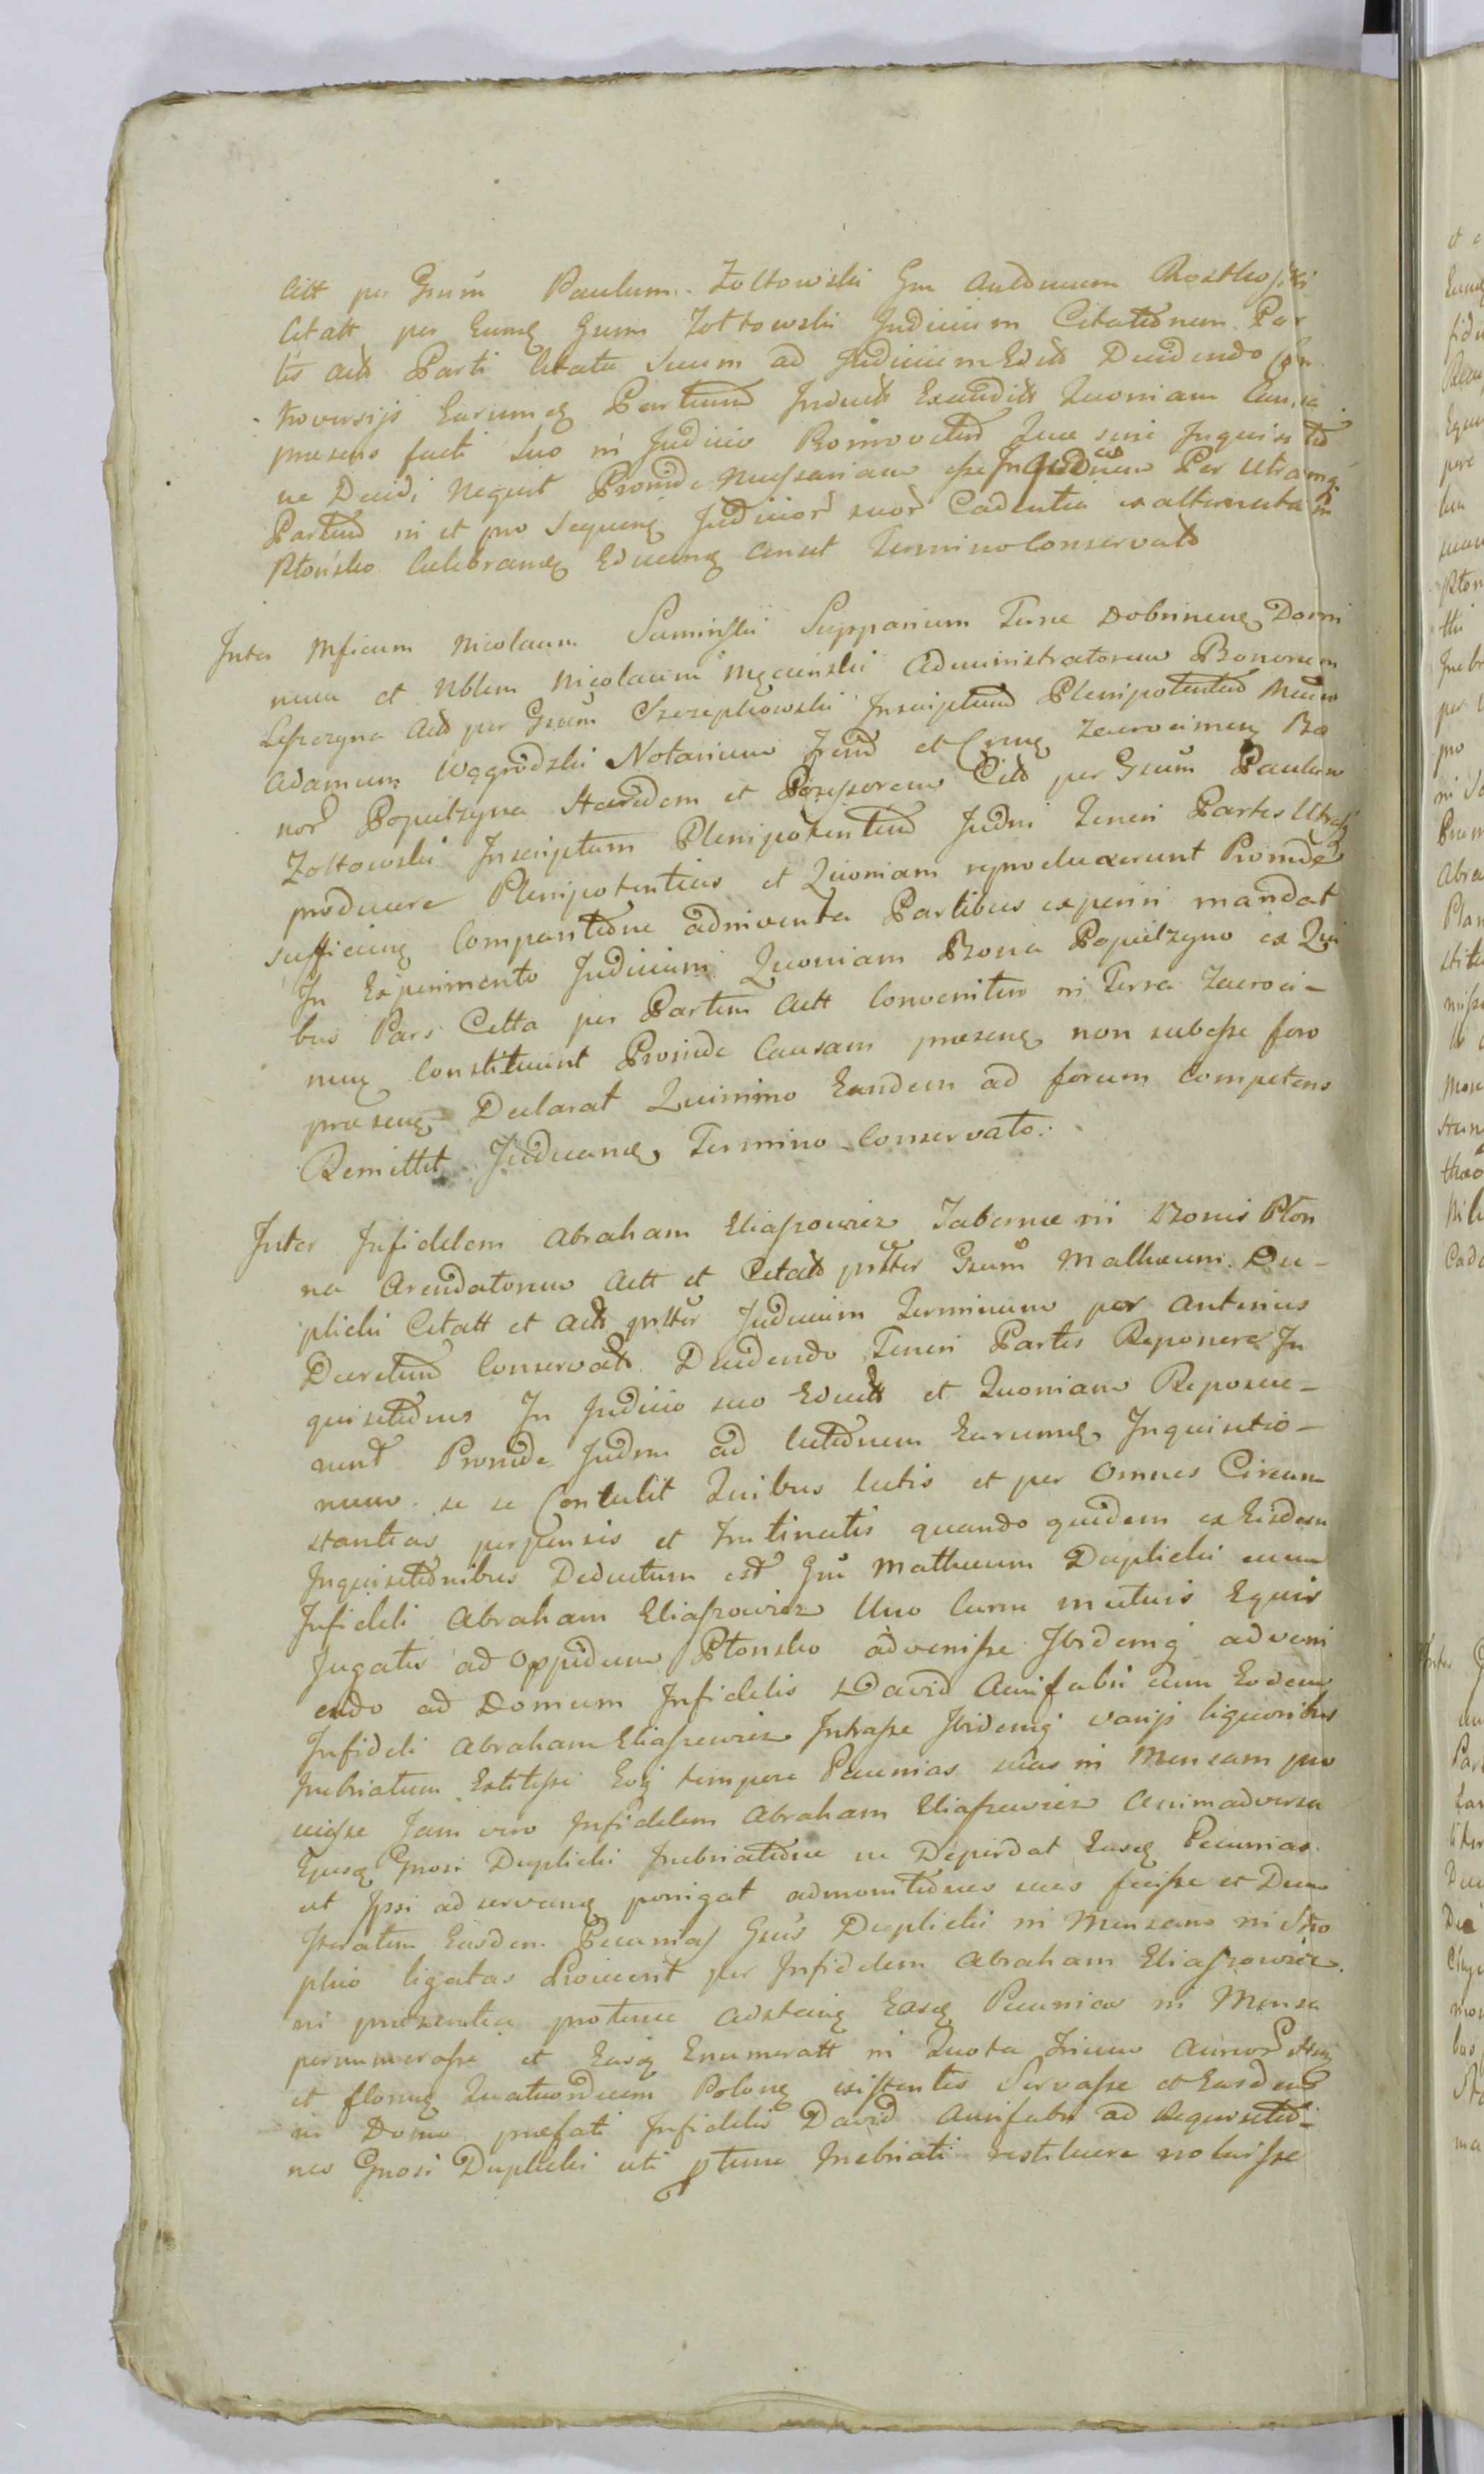 Actt per Grum Paulum Zołtowski Grm Antonium Rostkowski
Citatt per Eumq Grum Zołtowski Judicium Citationem Par
tis Actt Parti Citatu Suum ad Judicium Edito Decidendo Con
troversijs Earumq Partium Induct Exaudit Quoniam Causa
presens facti Suo in Judicio Promovetur Que sine Inquisitio
ne Decidi Nequit Proinde Necessariam esse Per Utramq
Partium in et pro Sequenq Judicior suor Cadentia ex alternata in
Płońsko Celebranq Educenq Censet Termino Conservato
Inter Mficum Nicolaum Suminski Supparium Terre Dobrinenq Domi
num et Nblem Nicolaum Męcinski Administratorem Bonorum
Leszczyna Actt per Grum Szczepkowski Inscriptum Plenipotentem
Adamum Węgrodzki Notarium Trem et Crmq Zacrocimenq Bo
nor Popielzyna Haeredem et Possessorem Citt per Grum Paulum
Zołtowski Inscriptum Plenipotentem Judm Teneri Partes Utrasq
producere Plenipotentias et Quoniam reproduxerunt Proinde
sufficienq Comparitione adinventa Partibus experiri mandat
In Experimento Judicium Quoniam Bona Popielzyno ex Qui
bus Pars Citta per Partem Actt Convenitur in Terra Zacroci-
menq Constituunt Proinde Causam presenq non subesse foro
presenq Declarat Quinimo Eandem ad forum Competens
Remittit Judicanq Termino Conservato.
Inter Infidelem Abraham Eliaszowicz Taberne in Bonis Płon
na Arendatorem Actt et Citatt pritter Grum Matheum Du-
plicki Citatt et Actt pritter Judicium Terminum per anterius
Decretum Conservatt Decidendo Teneri Partes Reponere In
quisitiones In Judicio suo Eductt et Quoniam Reposue-
runt Proinde Judm ad lectionem Earumq Inquisitio-
num se se Contulit Quibus lectis et per Omnes Circum
stantias perpensis et Trutinatis quando quidem ex Eisdem
Inquisitionibus Deductum est Grm Matheum Duplicki cum
Infideli Abraham Eliaszowicz Uno Curru mutuis Equis
Jugatis ad Oppidum Płonsko advenisse Ibidemq adveni
endo ad Domum Infidelis David Aurifabri cum Eodem
Infideli Abraham Eliaszewicz Intrasse Ibidemq varijs liquoribus
Inebriatum Extitisse Eoq tempore Pecunias suas in Mensam pro
iecisse Jam vero Infidelem Abraham Eliaszewicz Animadversa
Ejusq Gnosi Duplicki Inebriatione ne Deperdat Easq Pecunias
ut Ipsi ad servanq porrigat admonitiones suas fecisse et Dum
Iteratim Easdem Pecunias Grus Duplicki in Mensam in Stro
phio ligatas Projecerit per Infidelem Abraham Eliaszowicz
in presentia protunc Adstanq Easq Pecunias in Mensa
pernumerasse et Easq Enumeratt in Quota Trium Aureor
et florenq Quatuordecim Polonq existentes Servasse et Easdem
in Domo prefati Infidelis David Aurifabri ad Requisitio-
nes Gnosi Duplicki uti ptunc Inebriati restituere noluisse